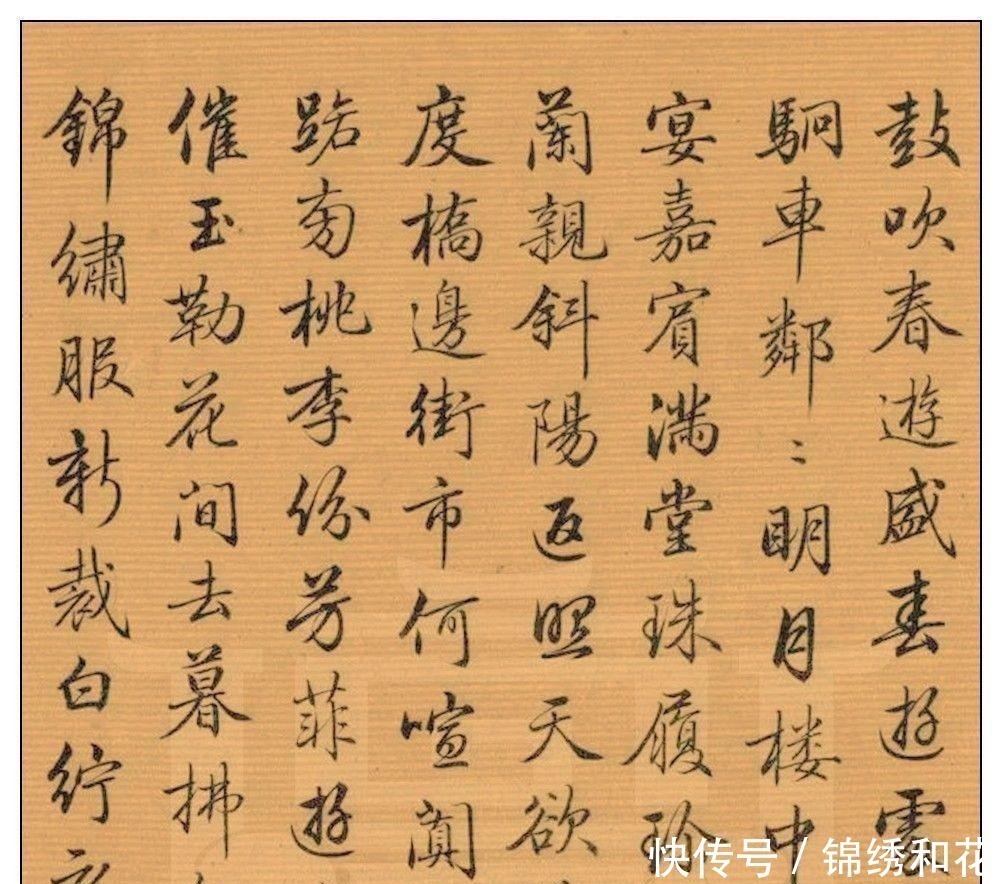 鼓吹春遊盛春遊雲
駉車鄰〻明月楼中
宴嘉賓滿堂珠履
蘭親斜陽返照天欲
度橋邊街市何喧闐
路旁桃李份芳菲遊
催玉勒花间去暮拂
錦繡服新裁白紵
快传号 / 锦绣和花